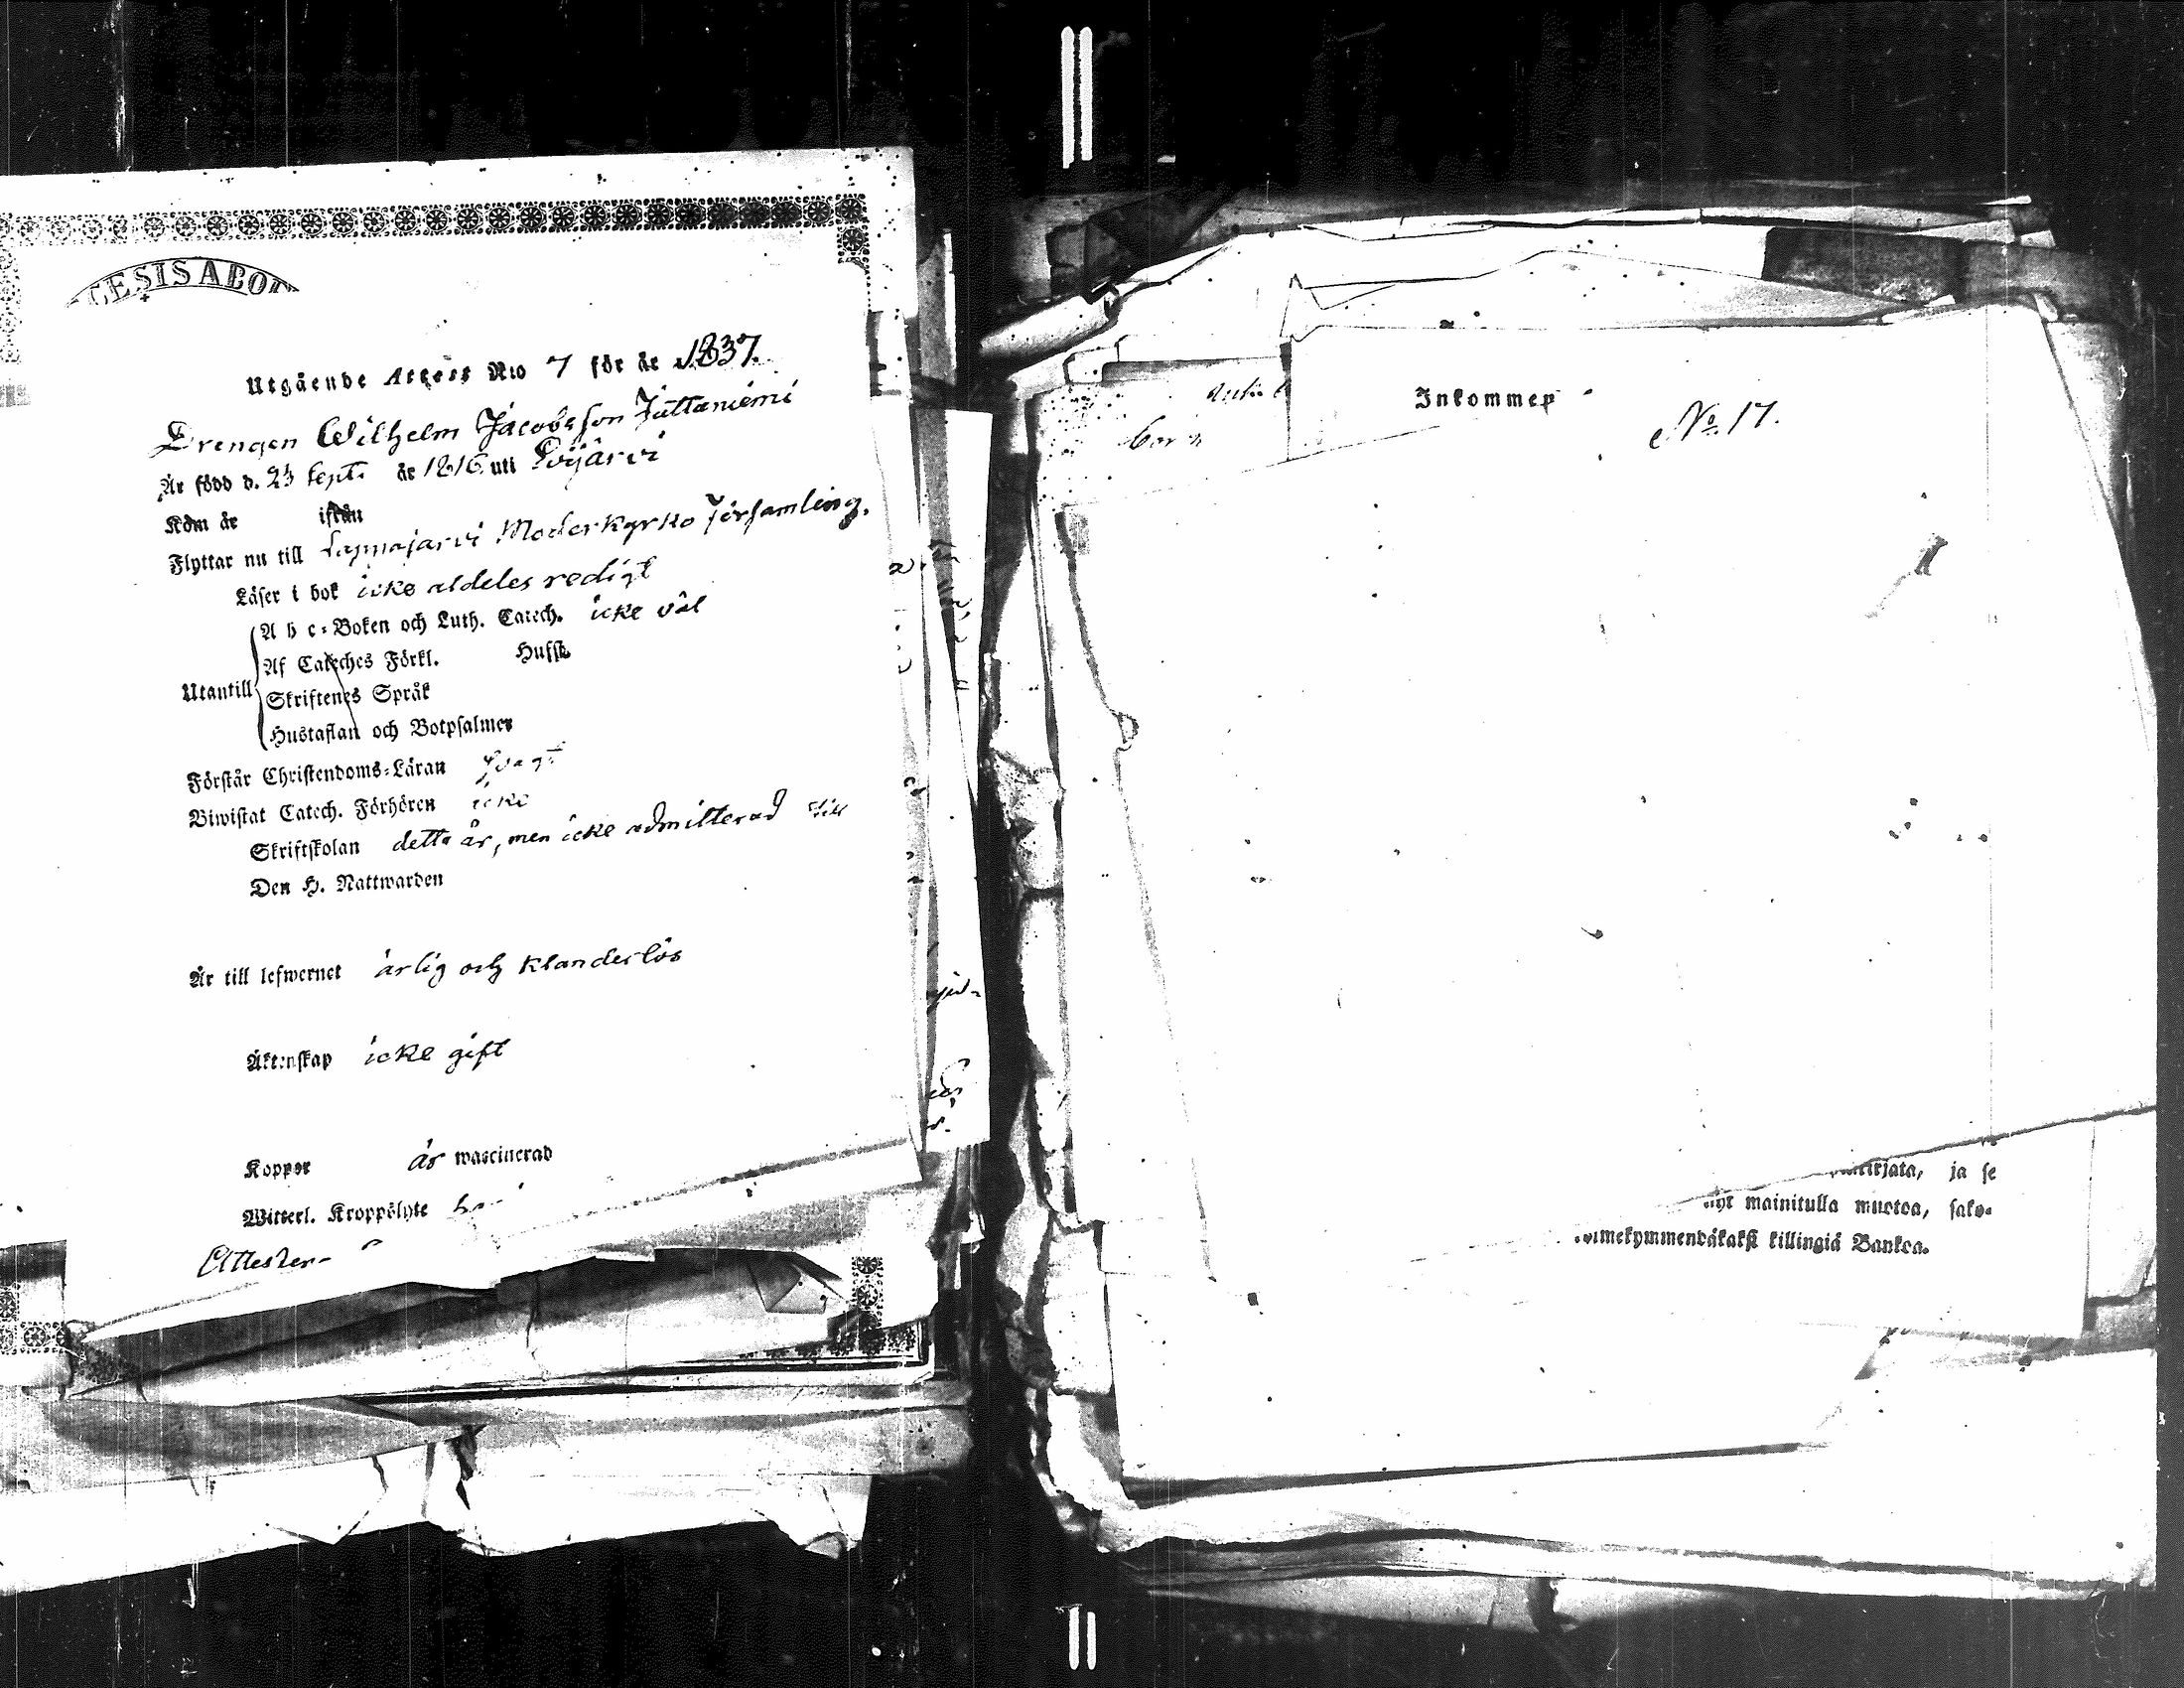 CESIS ABO
Utgående Attest N:o 7 för år 1837.
Drengen Wilhelm Jacobsson
Är född d. 23 Sept. år 1816 uti
Kom år ifrån
Flyttar nu till Lappajärvi Moderkyrko Församling.
Läser i bok icke aldeles redigt
A b c-Boken och Luth. Catech. icke väl
Af Cateches Förkl. Hussk
Utantill
Skriftenes Språk
Hustaflan och Botpsalmer
Förstår Christendoms-Läran svagt
Biwistat Catech. Förhören icke
Skriftskolan detta år, men icke admitterad till
Den H. Nattwarden
Är till lefwernet ärlig och klanderlös
Äktenskap icke gift
Koppor är waccinerad
Witterl. Kroppslyte
Inkommen
No 17.
ja se
mainitulla muotoa, sako-
killingiä Bankoa.